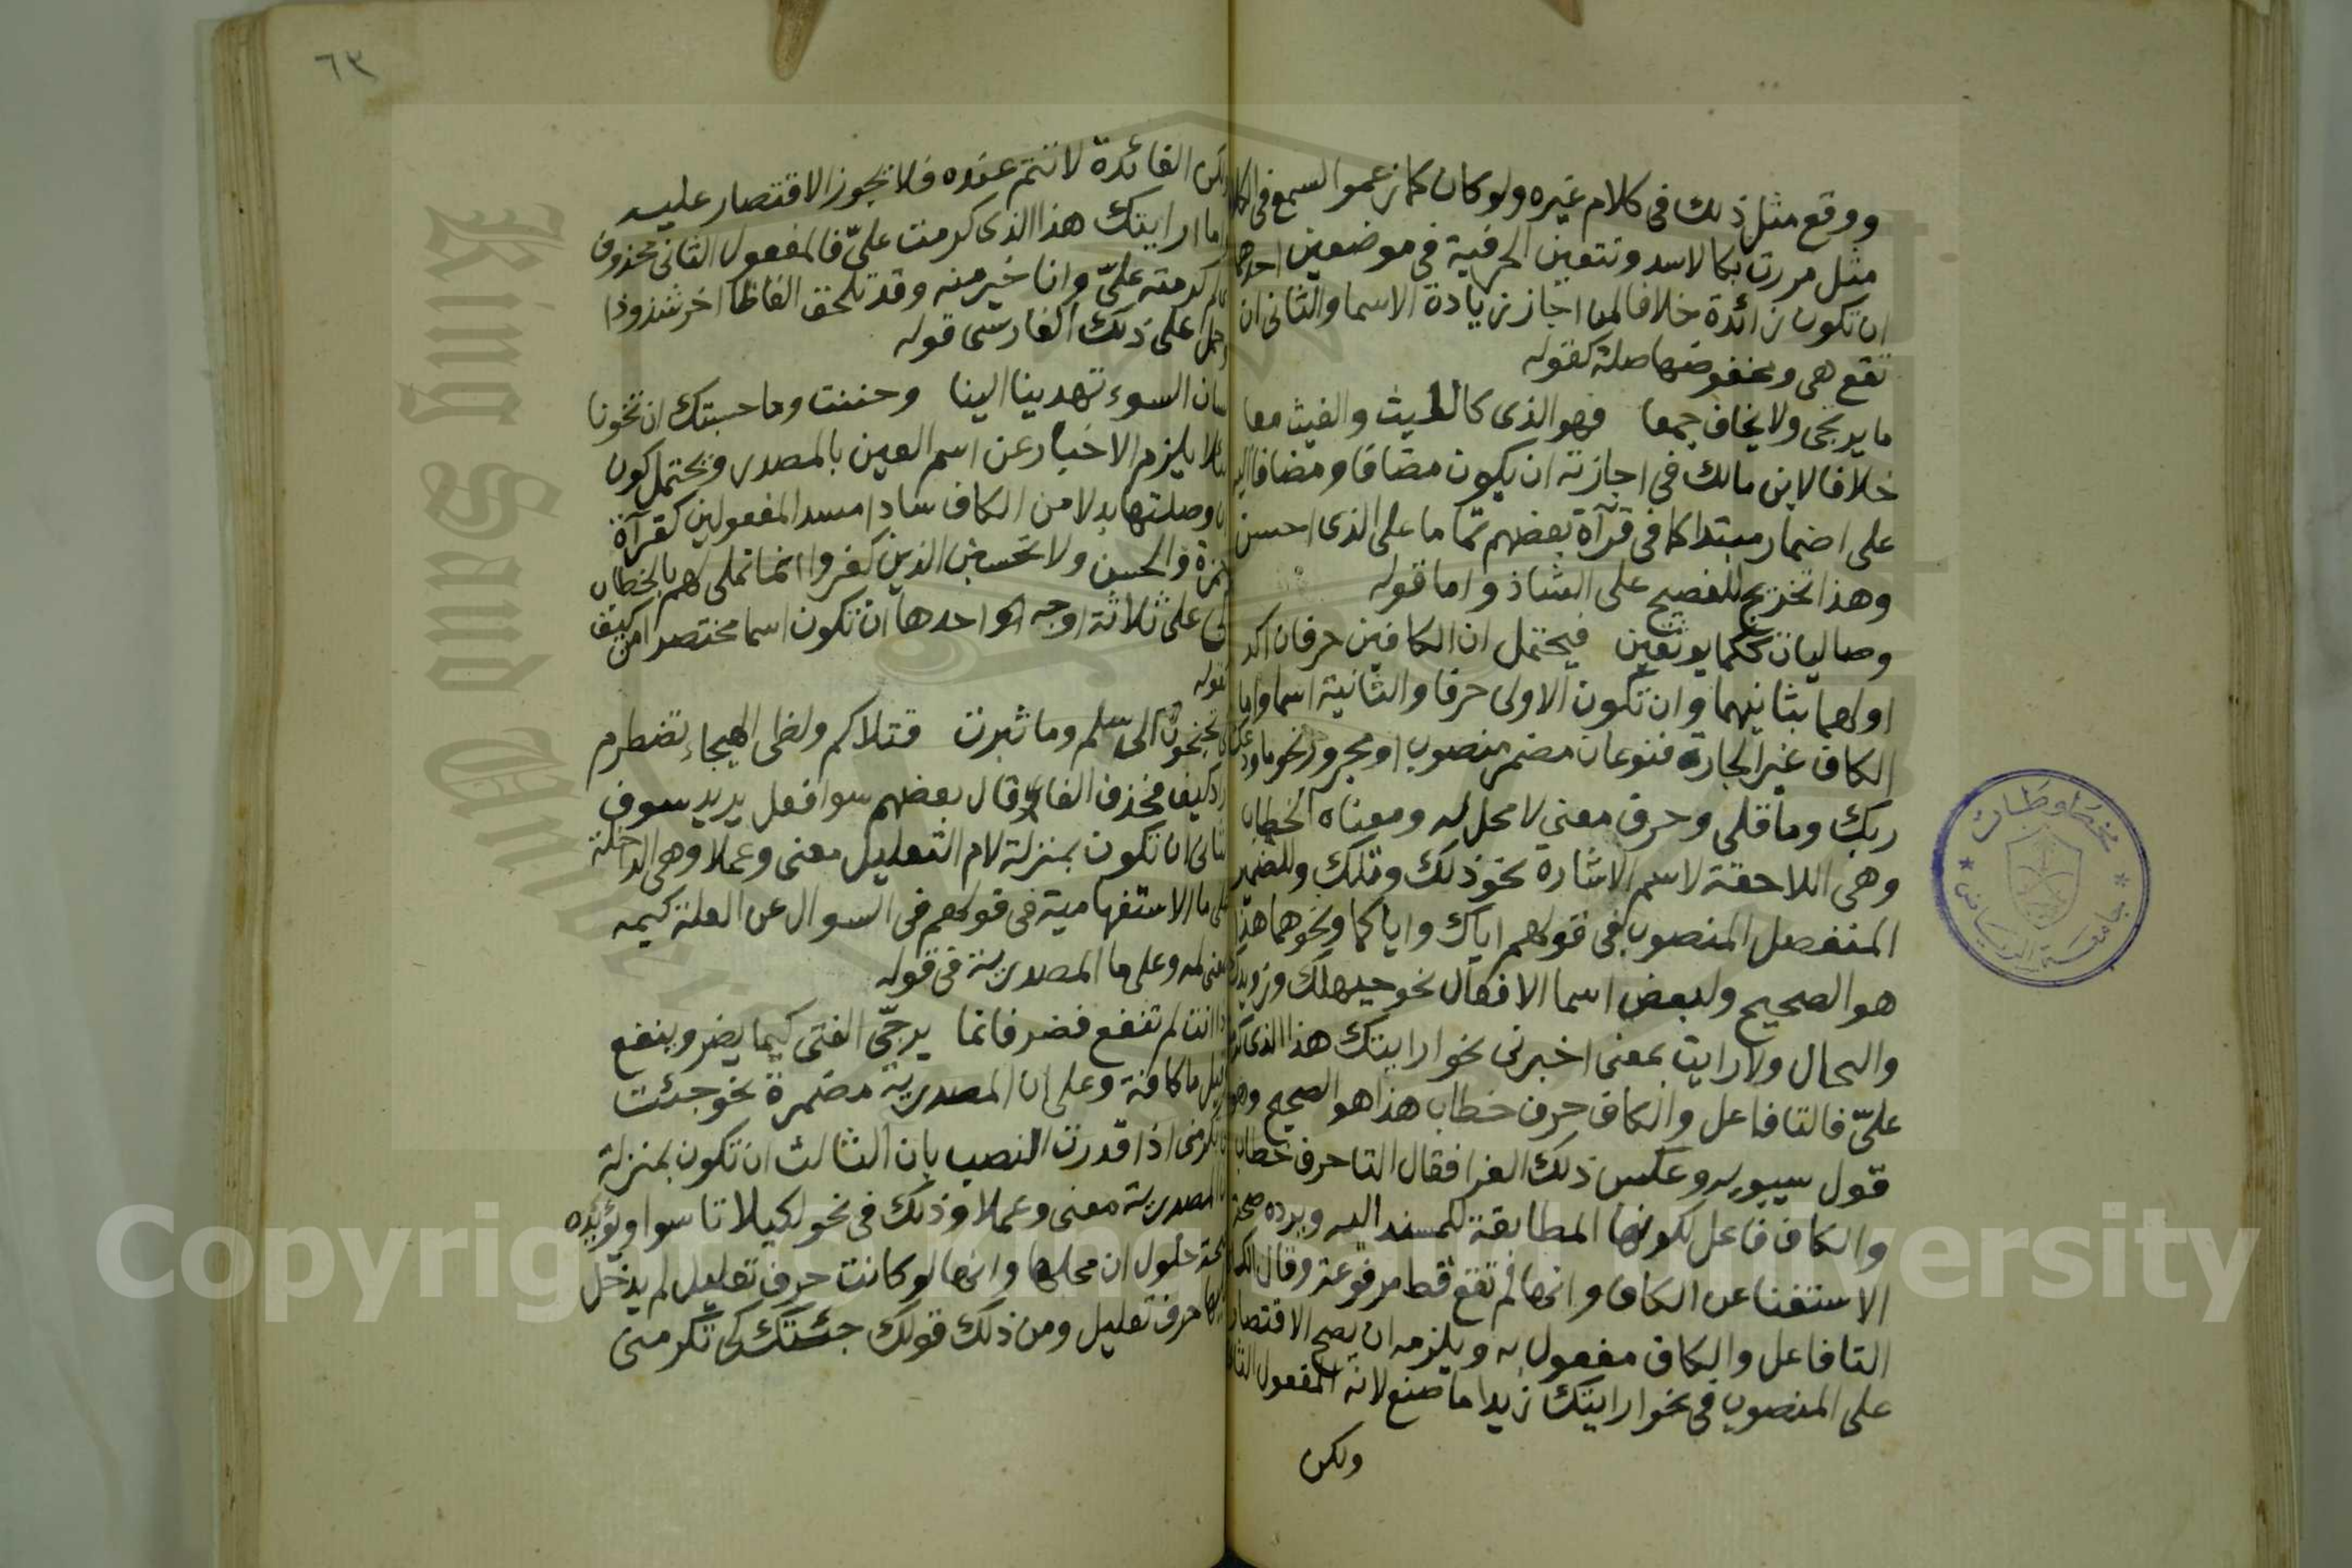 ووقع مثل ذلك فى كلام غيره ولو كان كما زعموا لسمع فى الكلا
مثل مررت بكالاسد وتتعين الحرفية فى موضعين احدهما
ان تكون زائدة خلافا لمن اجاز زيادة الاسما والثانى ان
تقع هى ومخفوضها صلة كقوله
ما يرتجى ولا يخاف جمعا فهو الذى كالليث والغيث معا
خلافا لابن مالك فى اجازته ان يكون مضافا ومضافا اليه
على اضمار مبتدا كما فى قرآة بعضهم تماما على الذى احسن
وهذا تخريج للفصيح على الشاذ واما قوله
وصاليات ككما يوثفين فيحتمل ان الكافين حرفان اكد
اولهما بثانيهما وان تكون الاولى حرفا والثانية اسما واما
الكاف غير الجارة فنوعان مضمر منصوب او مجرور نحو ما ودعك
ربك وما قلى وحرف معنى لا محل له ومعناه الخطاب
وهى اللاحقة لاسم الاشارة نحو ذلك وتلك وللضمير
المنفصل المنصوب فى قولهم اياك واياكما ونحوهما هذا
هو الصحيح ولبعض اسما الافعال نحو حيهلك ورويدك
والنحال ولارايت بمعنى اخبرنى نحو ارايتك هذا الذى كرمت
علىّ فالتا فاعل والكاف حرف خطاب هذا هو الصحيح وهو
قول سيبويه وعكس ذلك الفرا فقال التا حرف خطاب
والكاف فاعل لكونها المطابقة للمسند اليه ويرده صحة
الاستغنا عن الكاف وانها لم تقع قط مرفوعة وقال الكسا
التا فاعل والكاف مفعول به ويلزمه ان يصح الاقتصار
على المنصوب فى نحو ارايتك زيدا ما صنع لانه المفعول الثا
ولكن
٦٣
ولكن الفائدة لا تتم عنده فلا يجوز الاقتصار عليه
واما ارايتك هذا الذى كرمت علىّ فالمفعول الثانى محذوف
لم كرمته علىّ وانا خير منه وقد تلحق الفاظا اخر شذوذا
وحمل على ذلك الفارسى قوله
لسان السوء تهدينا الينا وحننت وما حسبتك ان تخونا
لئلا يلزم الاخبار عن اسم العين بالمصدر ويحتمل كون
ان وصلتها بدلا من الكاف سادا مسد المفعولين كقرآة
حمزة ولا تحسبن الذين كفروا انما نملى لهم بالخطاب
كى على ثلاثة اوجه احدها ان تكون اسما مختصرا من كيف
كقوله
كى تجنحون الى سلم وما ثئرت قتلاكم ولظى الهيجاء تضطرم
اراد كيف فحذف الفا وقال بعضهم سو افعل يريد سوف
الثانى ان تكون بمنزلة لام التعليل معنى وعملا وهى الداخلة
على ما الاستفهامية فى قولهم فى السوال عن العلة كيمه
بمعنى لمه وعلى ما المصدرية فى قوله
اذا انت لم تنفع فضر فانما يرجّى الفتى كيما يضر وينفع
وقيل ما كافة وعلى ان المصدرية مضمرة نحو جئت
كى تكرمنى اذا قدرت النصب بان الثالث ان تكون بمنزلة
ان المصدرية معنى وعملا وذلك فى نحو لكيلا تاسوا ويؤيده
صحة حلول ان محلها وانها لو كانت حرف تعليل لم يدخل
عليها حرف تعليل ومن ذلك قولك جئتك كى تكرمنى
مخطوطات
جامعة الرياض
King Saud University
Copyright © King Saud University